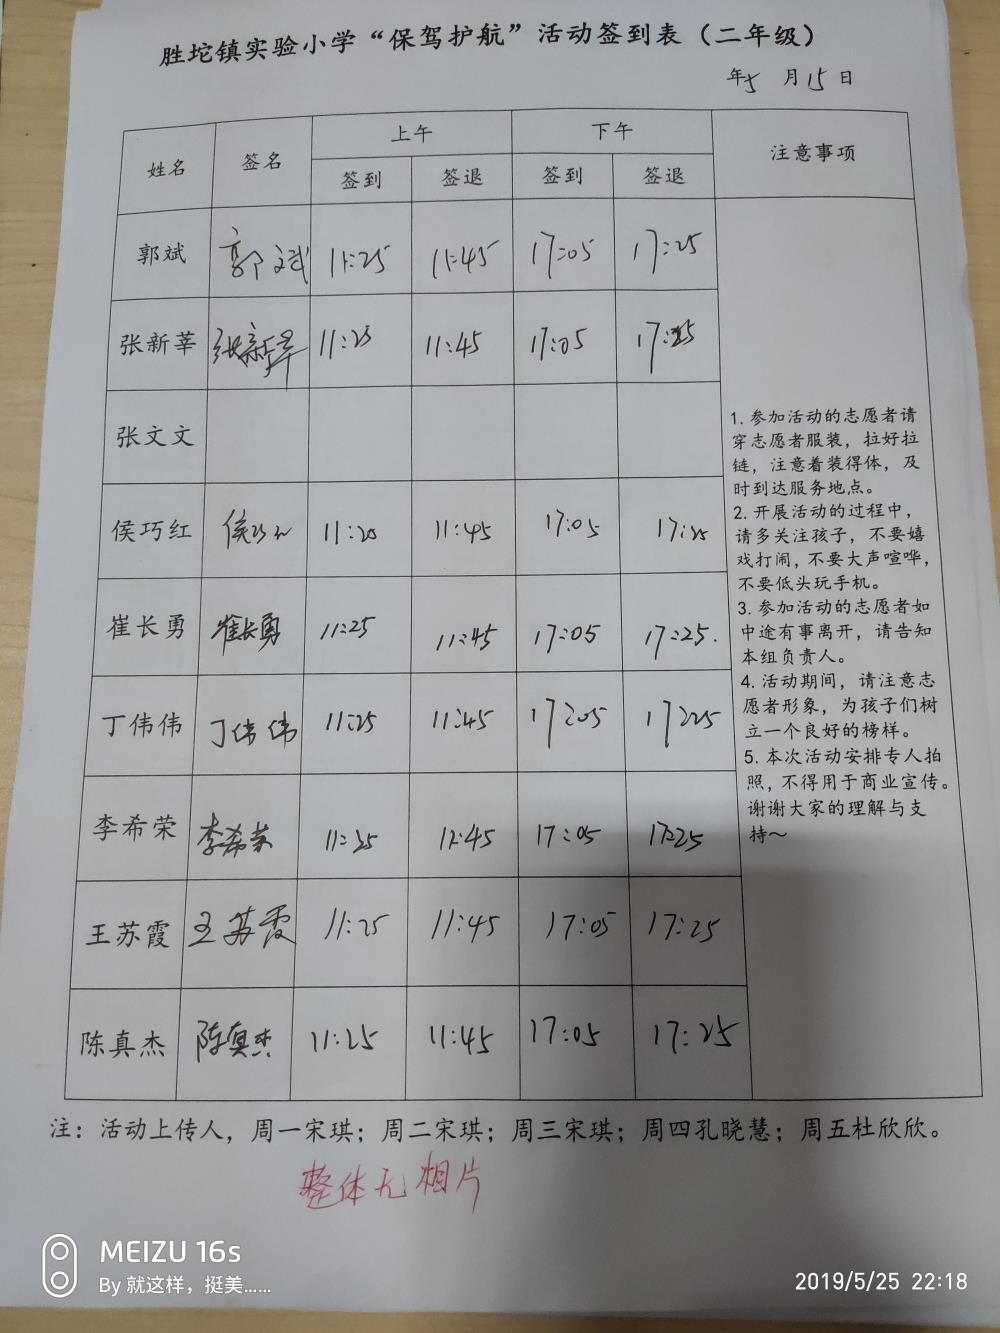 胜坨镇实验小学“保驾护航”活动签到表（二年级）
年5 月15日
姓名 签名 上午 下午 注意事项
签到 签退 签到 签退
郭斌 郭斌 11:25 11:45 17:05 17:25
张新莘 张新莘 11:25 11:45 17:05 17:25
张文文
侯巧红 侯巧红 11:25 11:45 17:05 17:25
崔长勇 崔长勇 11:25 11:45 17:05 17:25.
丁伟伟 丁伟伟 11:25 11:45 17:05 17:25
李希荣 李希荣 11:25 11:45 17:05 17:25
王苏霞 王苏霞 11:25 11:45 17:05 17:25
陈真杰 陈真杰 11:25 11:45 17:05 17:25
1.参加活动的志愿者请
穿志愿者服装，拉好拉
链，注意着装得体，及
时到达服务地点。
2.开展活动的过程中，
请多关注孩子，不要嬉
戏打闹，不要大声喧哗，
不要低头玩手机。
3.参加活动的志愿者如
中途有事离开，请告知
本组负责人。
4.活动期间，请注意志
愿者形象，为孩子们树
立一个良好的榜样。
5.本次活动安排专人拍
照，不得用于商业宣传。
谢谢大家的理解与支
持～
注：活动上传人，周一宋琪；周二宋琪；周三宋琪；周四孔晓慧；周五杜欣欣。
整体无相片
MEIZU 16s
By 就这样，挺美......
2019/5/25 22:18